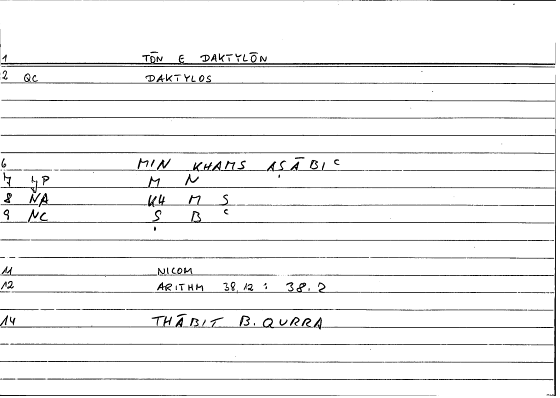 1 TŌN E DAKTYLŌN
2 QC DAKTYLOS
6 MIN KHAMS AṢĀBIᶜ
7 JP M N
8 NA KH M S
9 NC Ṣ B ᶜ
11 NICOM
12 ARITHM 38,12 : 38.2
14 THĀBIT B. QURRA